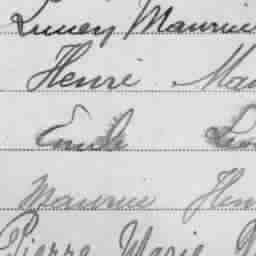 Lucien Maurice
Henri Mau
Emile Leo
Maurice Hen
Pierre Marie